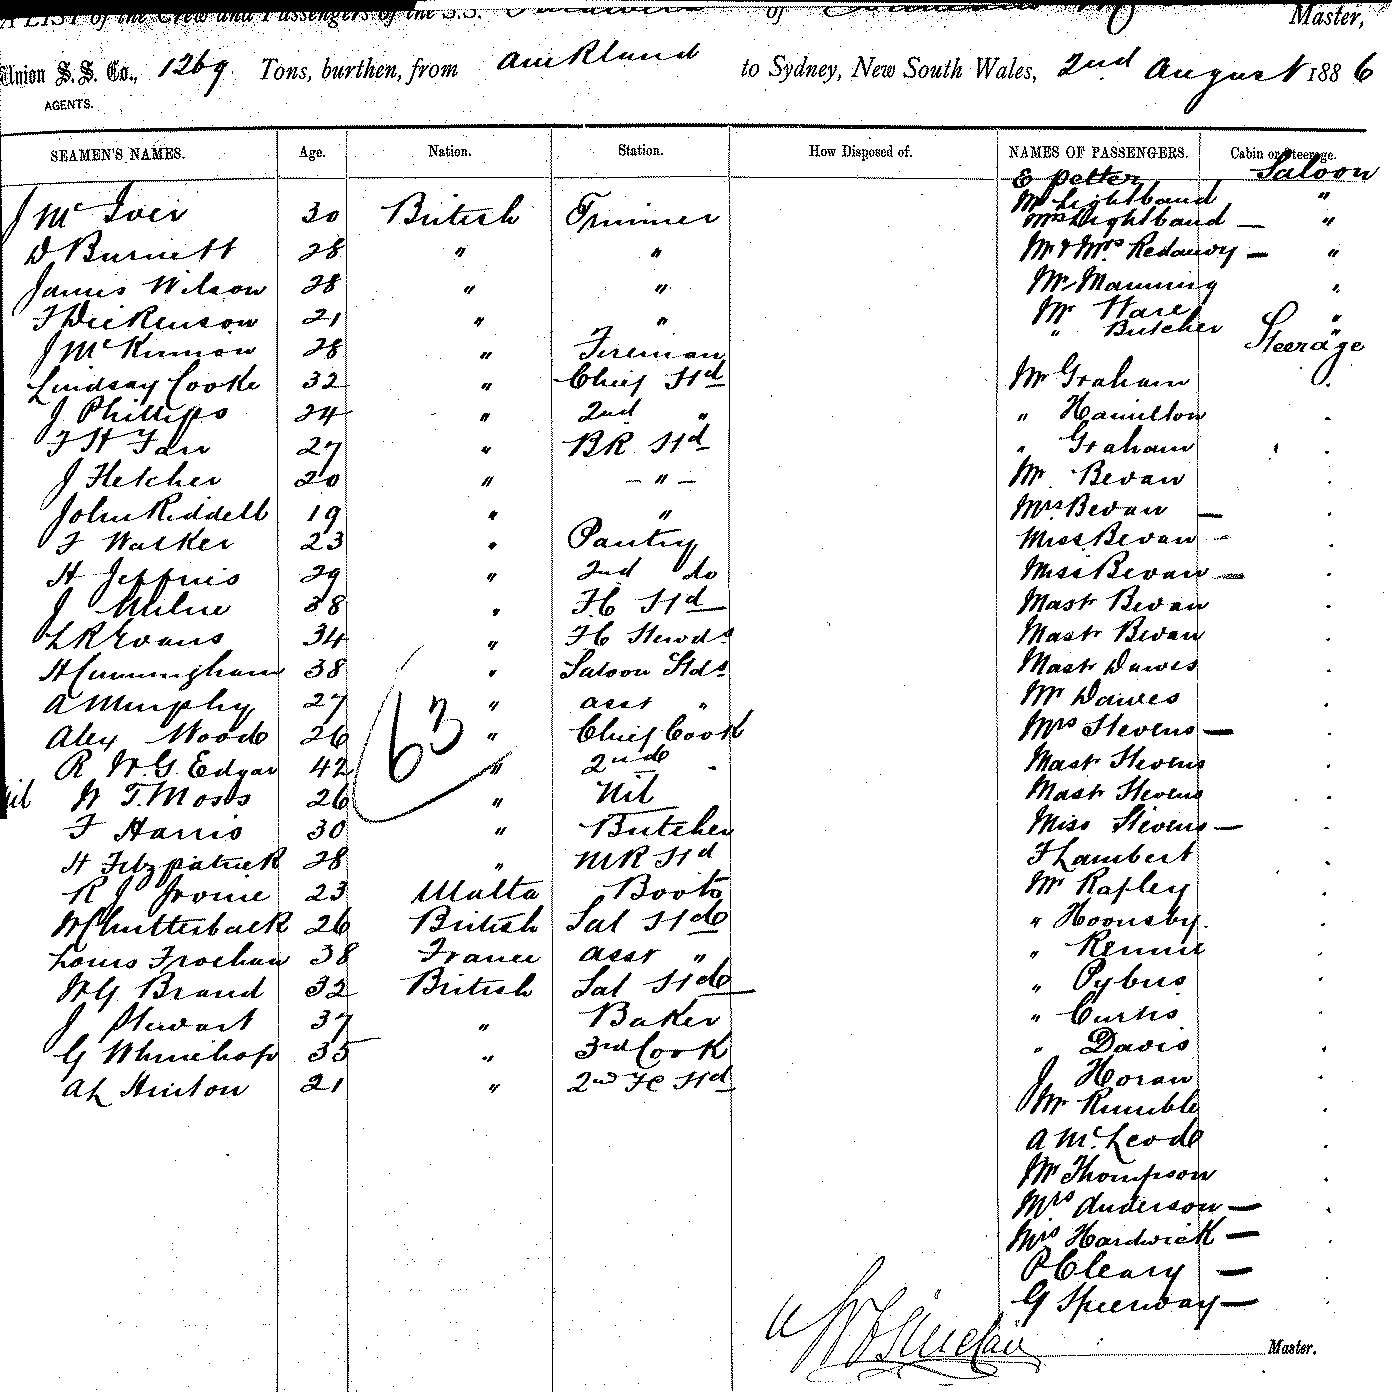 A LIST of the Crew and Passengers of the S.S. of Master,
Union S. S. Co., 1269 Tons, burthen, from Auckland to Sydney, New South Wales, 2nd August 1886
AGENTS.
SEAMEN'S NAMES. Age. Nation. Station. How Disposed of. NAMES OF PASSENGERS. Cabin or Steerage.
E Petter Saloon
J McIver 30 British Trimmer Mr Lightband "
Mrs Lightband — "
D Burnett 28 " " Mr & Mrs Redaway — "
James Wilson 28 " " Mr Manning "
F Dickenson 21 " " Mr Ware "
" Butcher Steerage
J McKinnon 28 " Fireman
Lindsay Cooke 32 " Chief Std Mr Graham
J Phillips 24 " 2nd " " Hamilton
F H Farr 27 " BR Std " Graham
J Fletcher 20 " — " — Mr Bevan
John Riddell 19 " " Mrs Bevan —
F Walker 23 " Pantry Miss Bevan -
H Jeffries 29 " 2nd do Miss Bevan —
J Milne 38 " FC Std Mast Bevan
L R Evans 34 " FC Stewds Mast Bevan
H Cunningham 38 " Saloon Stds Mast Dawes
A Murphy 27 " asst " Mr Dawes
63
Alex Wood 26 " Chief Cook Mrs Stevens —
R W.G. Edgar 42 " 2nd " Mast Stevens
W T. Moss 26 " Nil Mast Stevens
F Harris 30 " Butcher Miss Stevens —
H Fitzpatrick 28 " MR Std F Lambert
R J Irvine 23 Malta Boots Mr Rapley
W Chutterback 26 British Sal Std " Hoonsby
Louis Frochaw 38 France asst " " Rennie
W G Brand 32 British Sal Std " Pybus
J Stewart 37 " Baker " Curtis
G Whinehop 35 " 3rd Cook " Davis
A L Hinton 21 " 2nd FC Std J Horan
Mr Rumble
A McLeod
Mr Thompson
Mrs Anderson —
Mrs Hardwick —
P Cleary —
G Speerway —
W F Sinclair
Master.